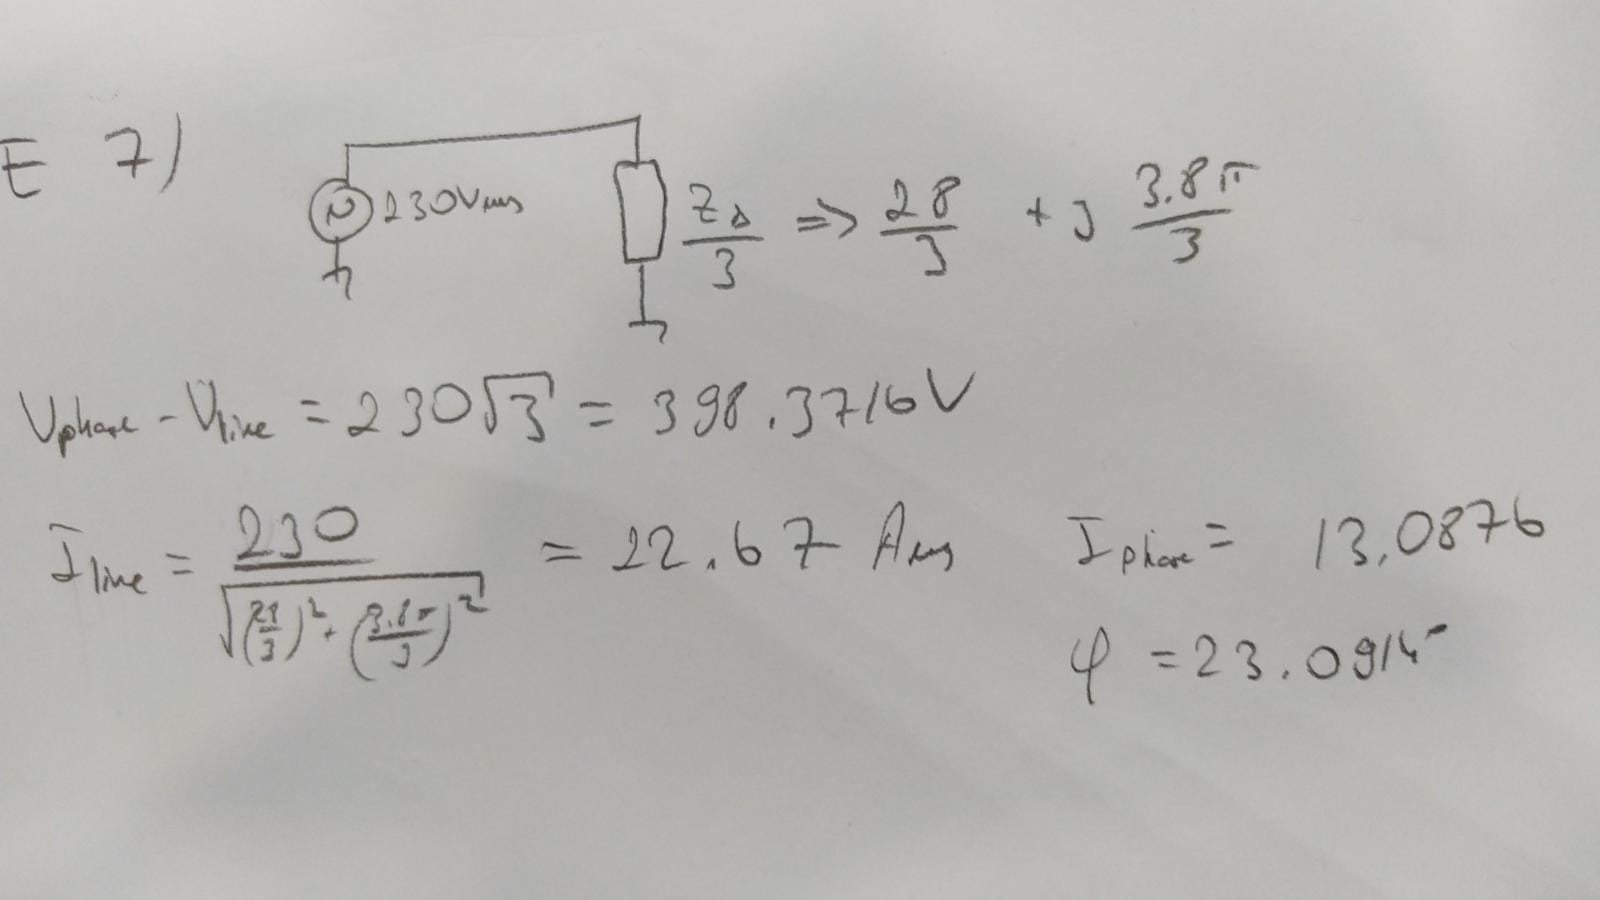 E 7)
230Vrms
Z△/3 => 28/3 + j 3.8π/3
Vphase - Vline = 230√3 = 398.3716V
Iline = 230/√((28/3)² + (3.8π/3)²) = 22.67 Arms
Iphase = 13.0876
φ = 23.0914°